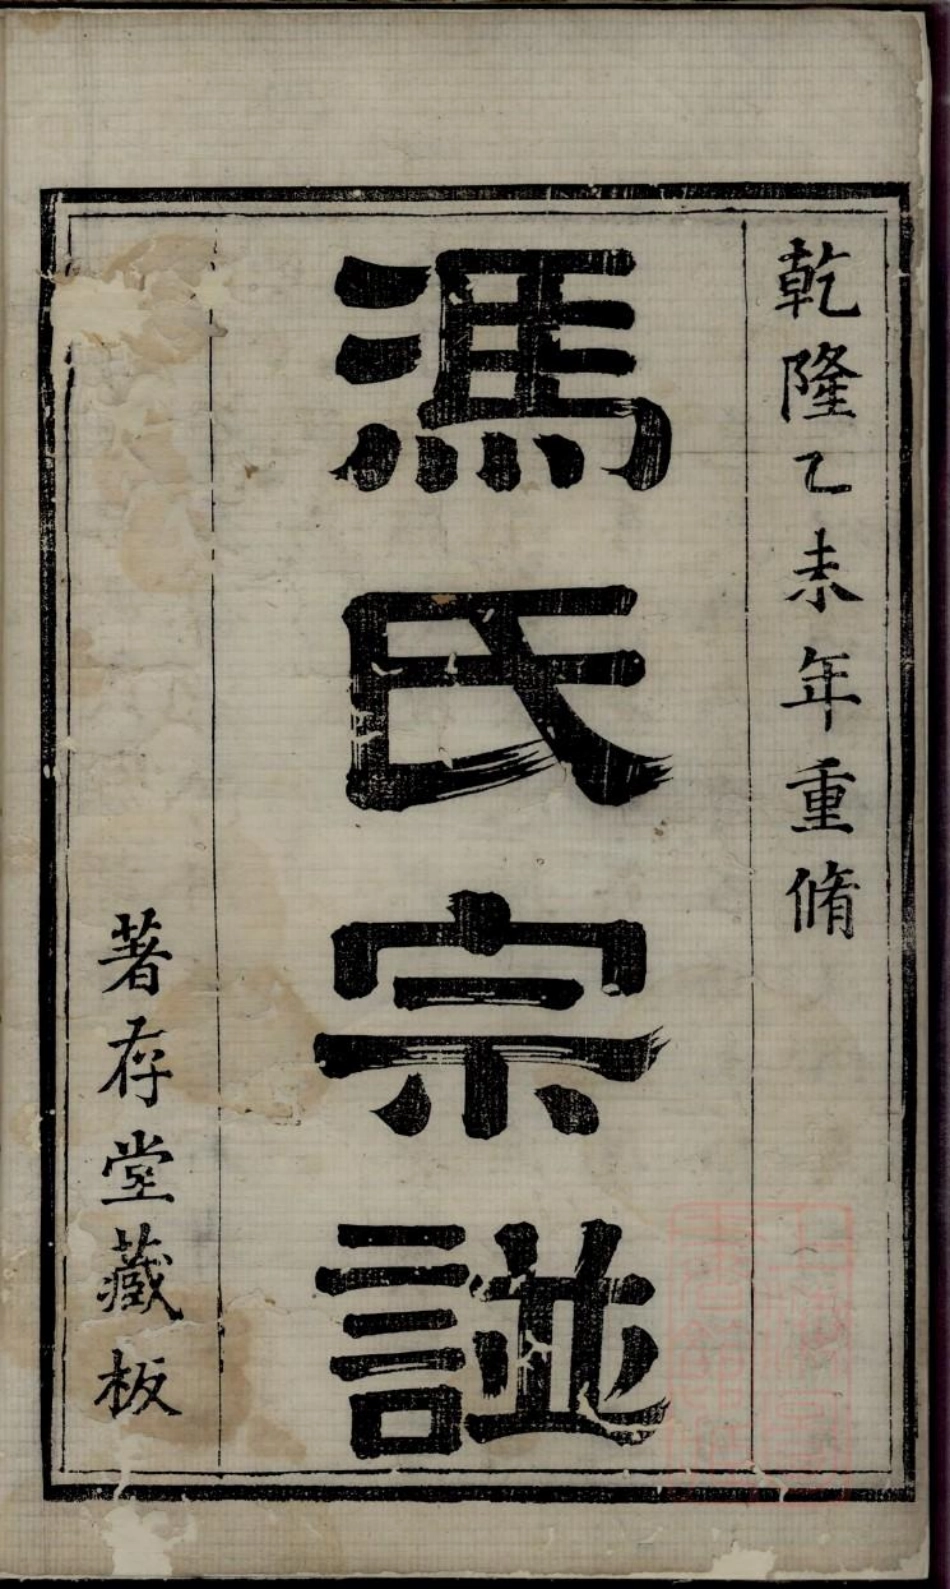 乾隆乙未年重脩
馮氏宗譜
著存堂藏板